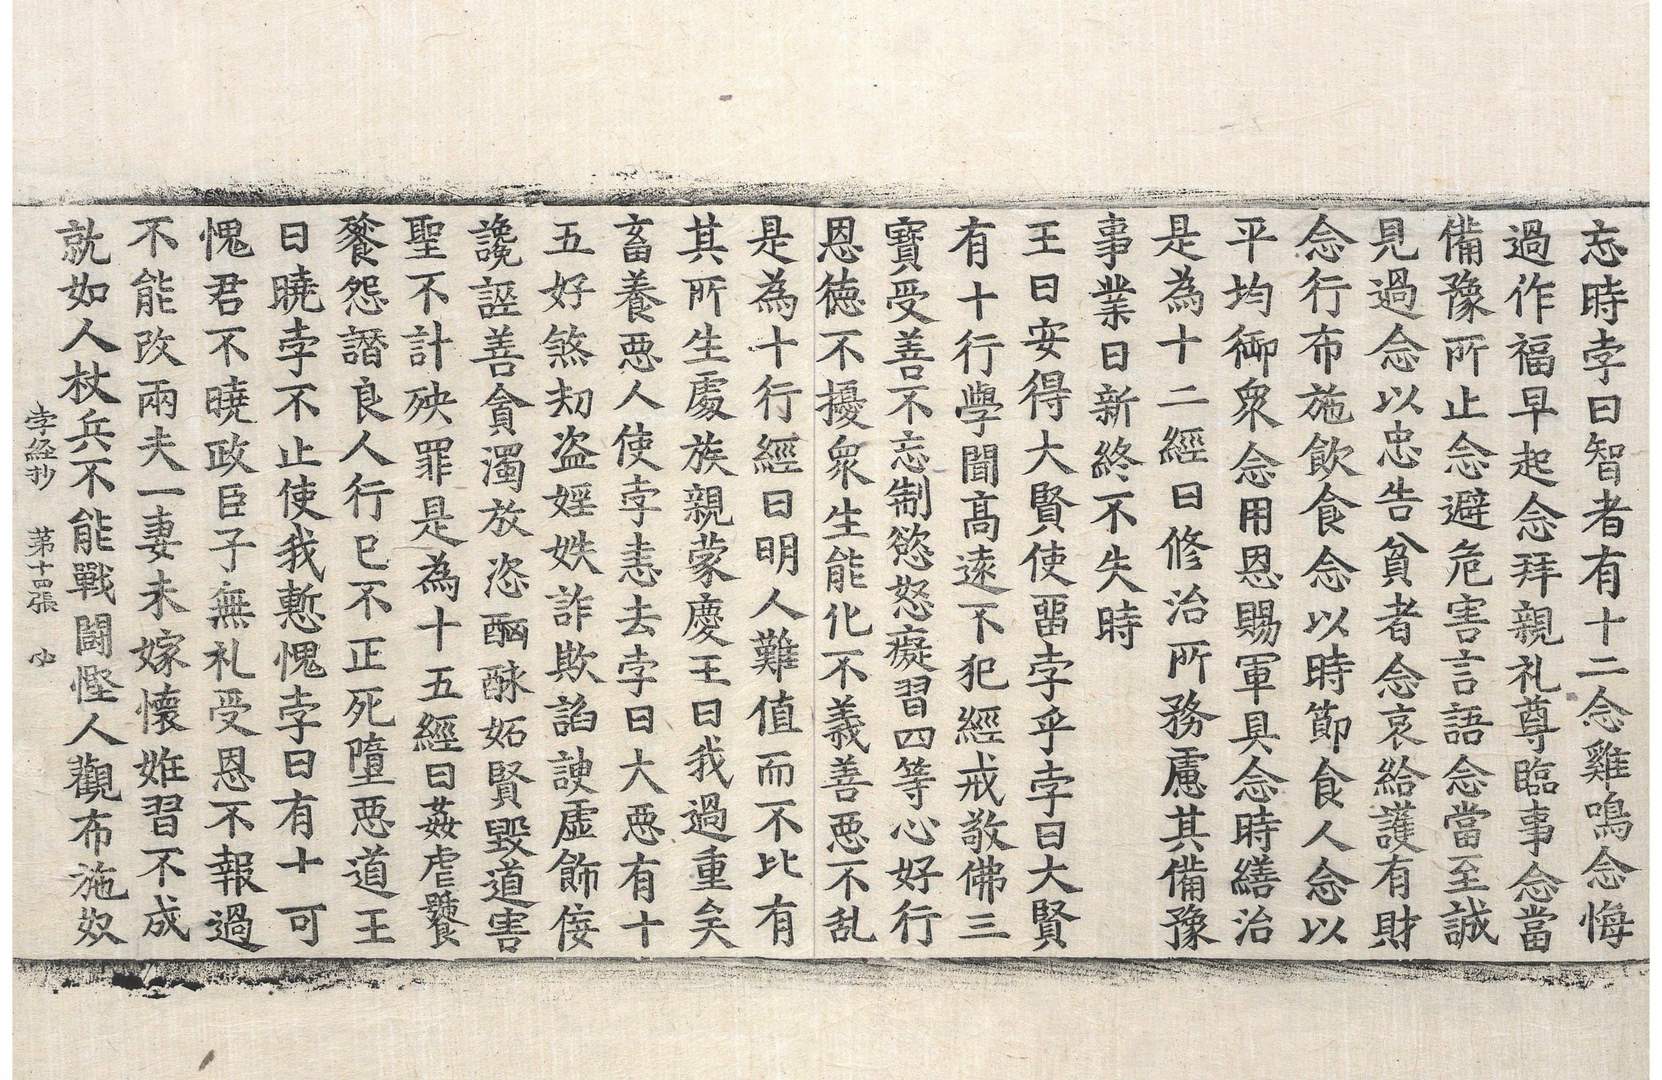 忘時孛曰智者有十二念雞鳴念悔
過作福早起念拜親礼尊臨事念當
備豫所止念避危害言語念當至誠
見過念以忠告貧者念哀給護有財
念行布施飲食念以時節食人念以
平均御衆念用恩賜軍具念時繕治
是為十二經曰修治所務慮其備豫
事業日新終不失時
王曰安得大賢使畱孛乎孛曰大賢
有十行學聞高遠不犯經戒敬佛三
寶受善不忘制慾怒癡習四等心好行
恩徳不擾衆生能化不義善惡不乱
是為十行經曰明人難值而不比有
其所生處族親蒙慶王曰我過重矣
畜養惡人使孛恚去孛曰大惡有十
五好煞刧盜婬妷詐欺諂諛虛飾佞
讒誣善貪濁放恣酗酴妬賢毀道害
聖不計殃罪是為十五經曰姦虐饕
餮怨譖良人行已不正死墮惡道王
曰曉孛不止使我慙愧孛曰有十可
愧君不曉政臣子無礼受恩不報過
不能改兩夫一妻未嫁懷姙習不成
就如人杖兵不能戰鬪慳人觀布施奴
孛經抄 第十四張